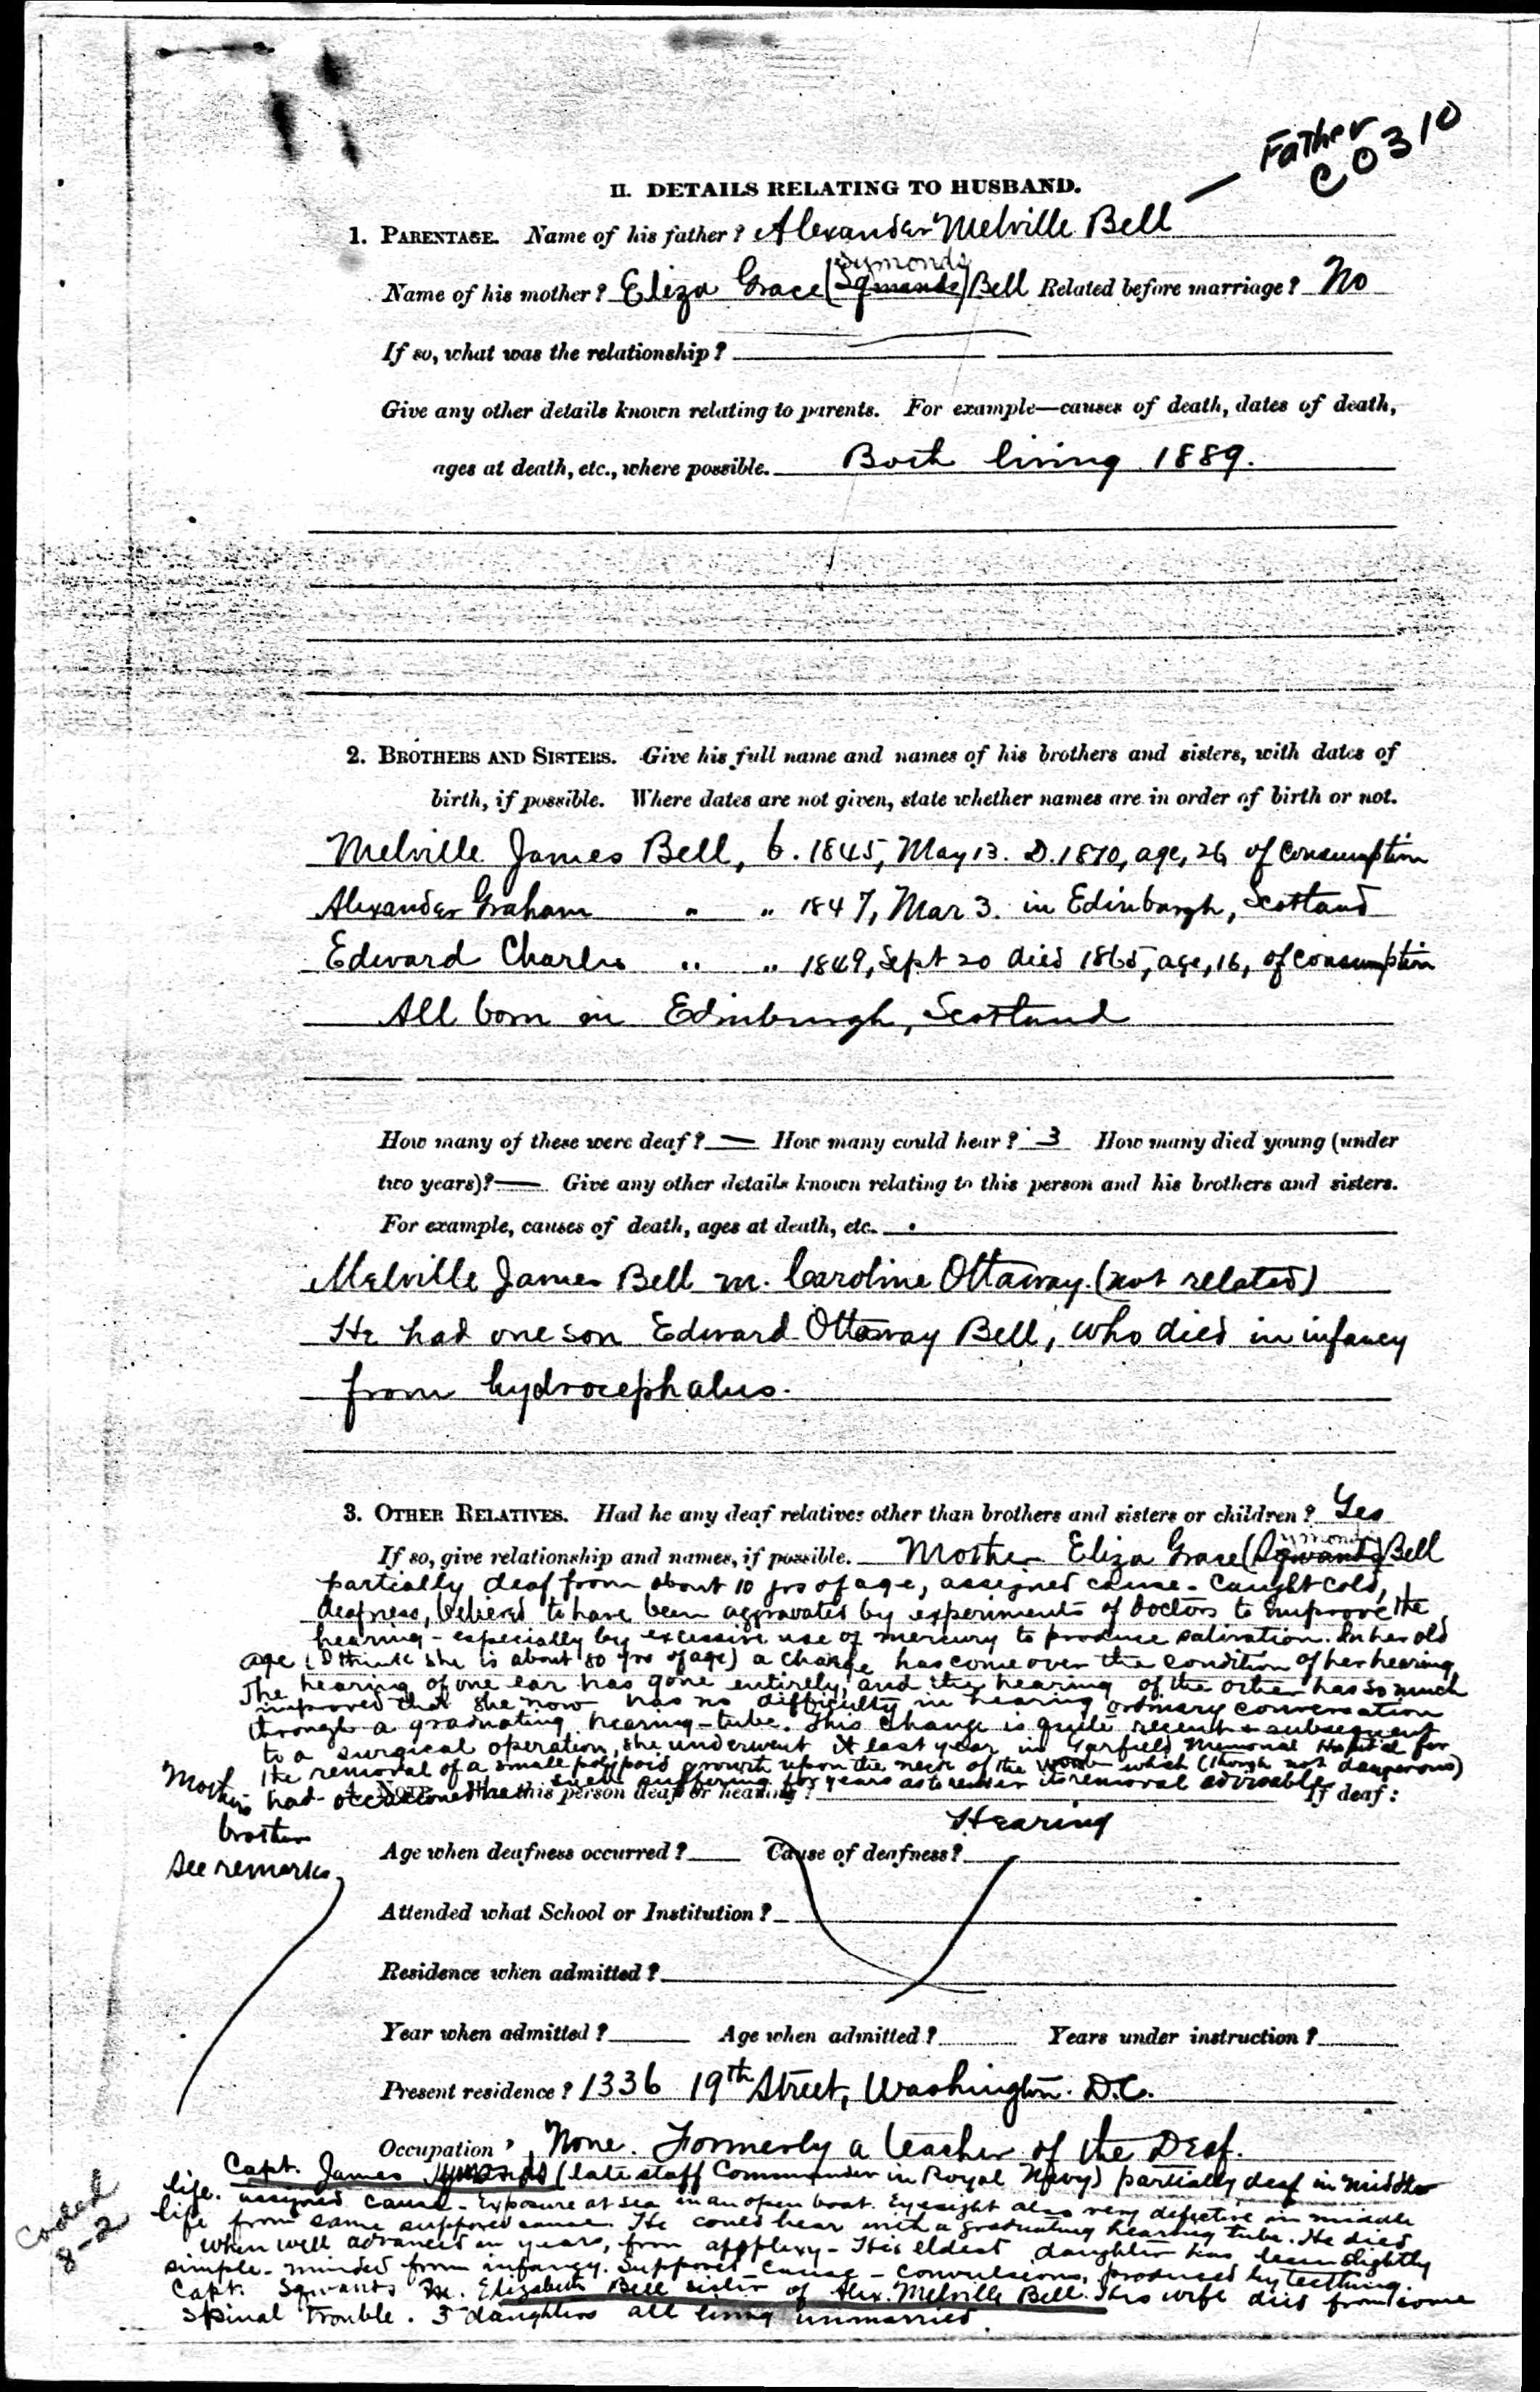 Father
C0310
II. DETAILS RELATING TO HUSBAND.
1. PARENTAGE. Name of his father? Alexander Melville Bell
Symonds
Name of his mother? Eliza Grace ( ) Bell Related before marriage? No
If so, what was the relationship?
Give any other details known relating to parents. For example—causes of death, dates of death,
ages at death, etc., where possible. Both living 1889.
2. BROTHERS AND SISTERS. Give his full name and names of his brothers and sisters, with dates of
birth, if possible. Where dates are not given, state whether names are in order of birth or not.
Melville James Bell, b. 1845, May 13. D. 1870, age, 26 of Consumption
Alexander Graham " " 1847, Mar 3. in Edinburgh, Scotland
Edward Charles " " 1849, Sept 20 died 1865, age, 16, of consumption
All born in Edinburgh, Scotland
How many of these were deaf? — How many could hear? 3 How many died young (under
two years)? — Give any other details known relating to this person and his brothers and sisters.
For example, causes of death, ages at death, etc.
Melville James Bell m. Caroline Ottaway. (not related)
He had one son Edward Ottaway Bell, who died in infancy
from hydrocephalus.
3. OTHER RELATIVES. Had he any deaf relatives other than brothers and sisters or children? Yes
ymonds
If so, give relationship and names, if possible. Mother Eliza Grace ( ) Bell
partially deaf from about 10 yrs of age, assigned cause - Caught cold,
deafness, believed to have been aggravated by experiments of doctors to improve the
hearing - especially by excessive use of mercury to produce salivation. In her old
age (I think she is about 80 yrs of age) a change has come over the condition of her hearing
The hearing of one ear has gone entirely, and the hearing of the other has so much
improved that she now has no difficulty in hearing ordinary conversation
through a graduating hearing-tube. This change is quite recent & subsequent
to a surgical operation, she underwent it last year in Garfield Memorial Hospital for
the removal of a small polypoid growth upon the neck of the womb which (though not dangerous)
had occasioned her such suffering for years as to render its removal advisable
4. NOTE. Was this person deaf or hearing? If deaf:
Mother's
brother
See remarks
Hearing
Age when deafness occurred? Cause of deafness?
Attended what School or Institution?
Residence when admitted?
Year when admitted? Age when admitted? Years under instruction?
Present residence? 1336 19th Street, Washington. D.C.
Occupation? None. Formerly a teacher of the Deaf.
Capt. James Symonds (late staff Commander in Royal Navy) partially deaf in middle
life. assigned cause - Exposure at sea in an open boat. Eyesight also very defective in middle
life from same supposed cause. He could hear with a graduating hearing tube. He died
when well advanced in years, from apoplexy - His eldest daughter has been slightly
simple-minded from infancy. Supposed cause - convulsions, produced by teething.
Capt. Symonds m. Elizabeth Bell sister of Alex. Melville Bell. His wife died from some
spinal trouble. 3 daughters all living unmarried.
Coded
8-2